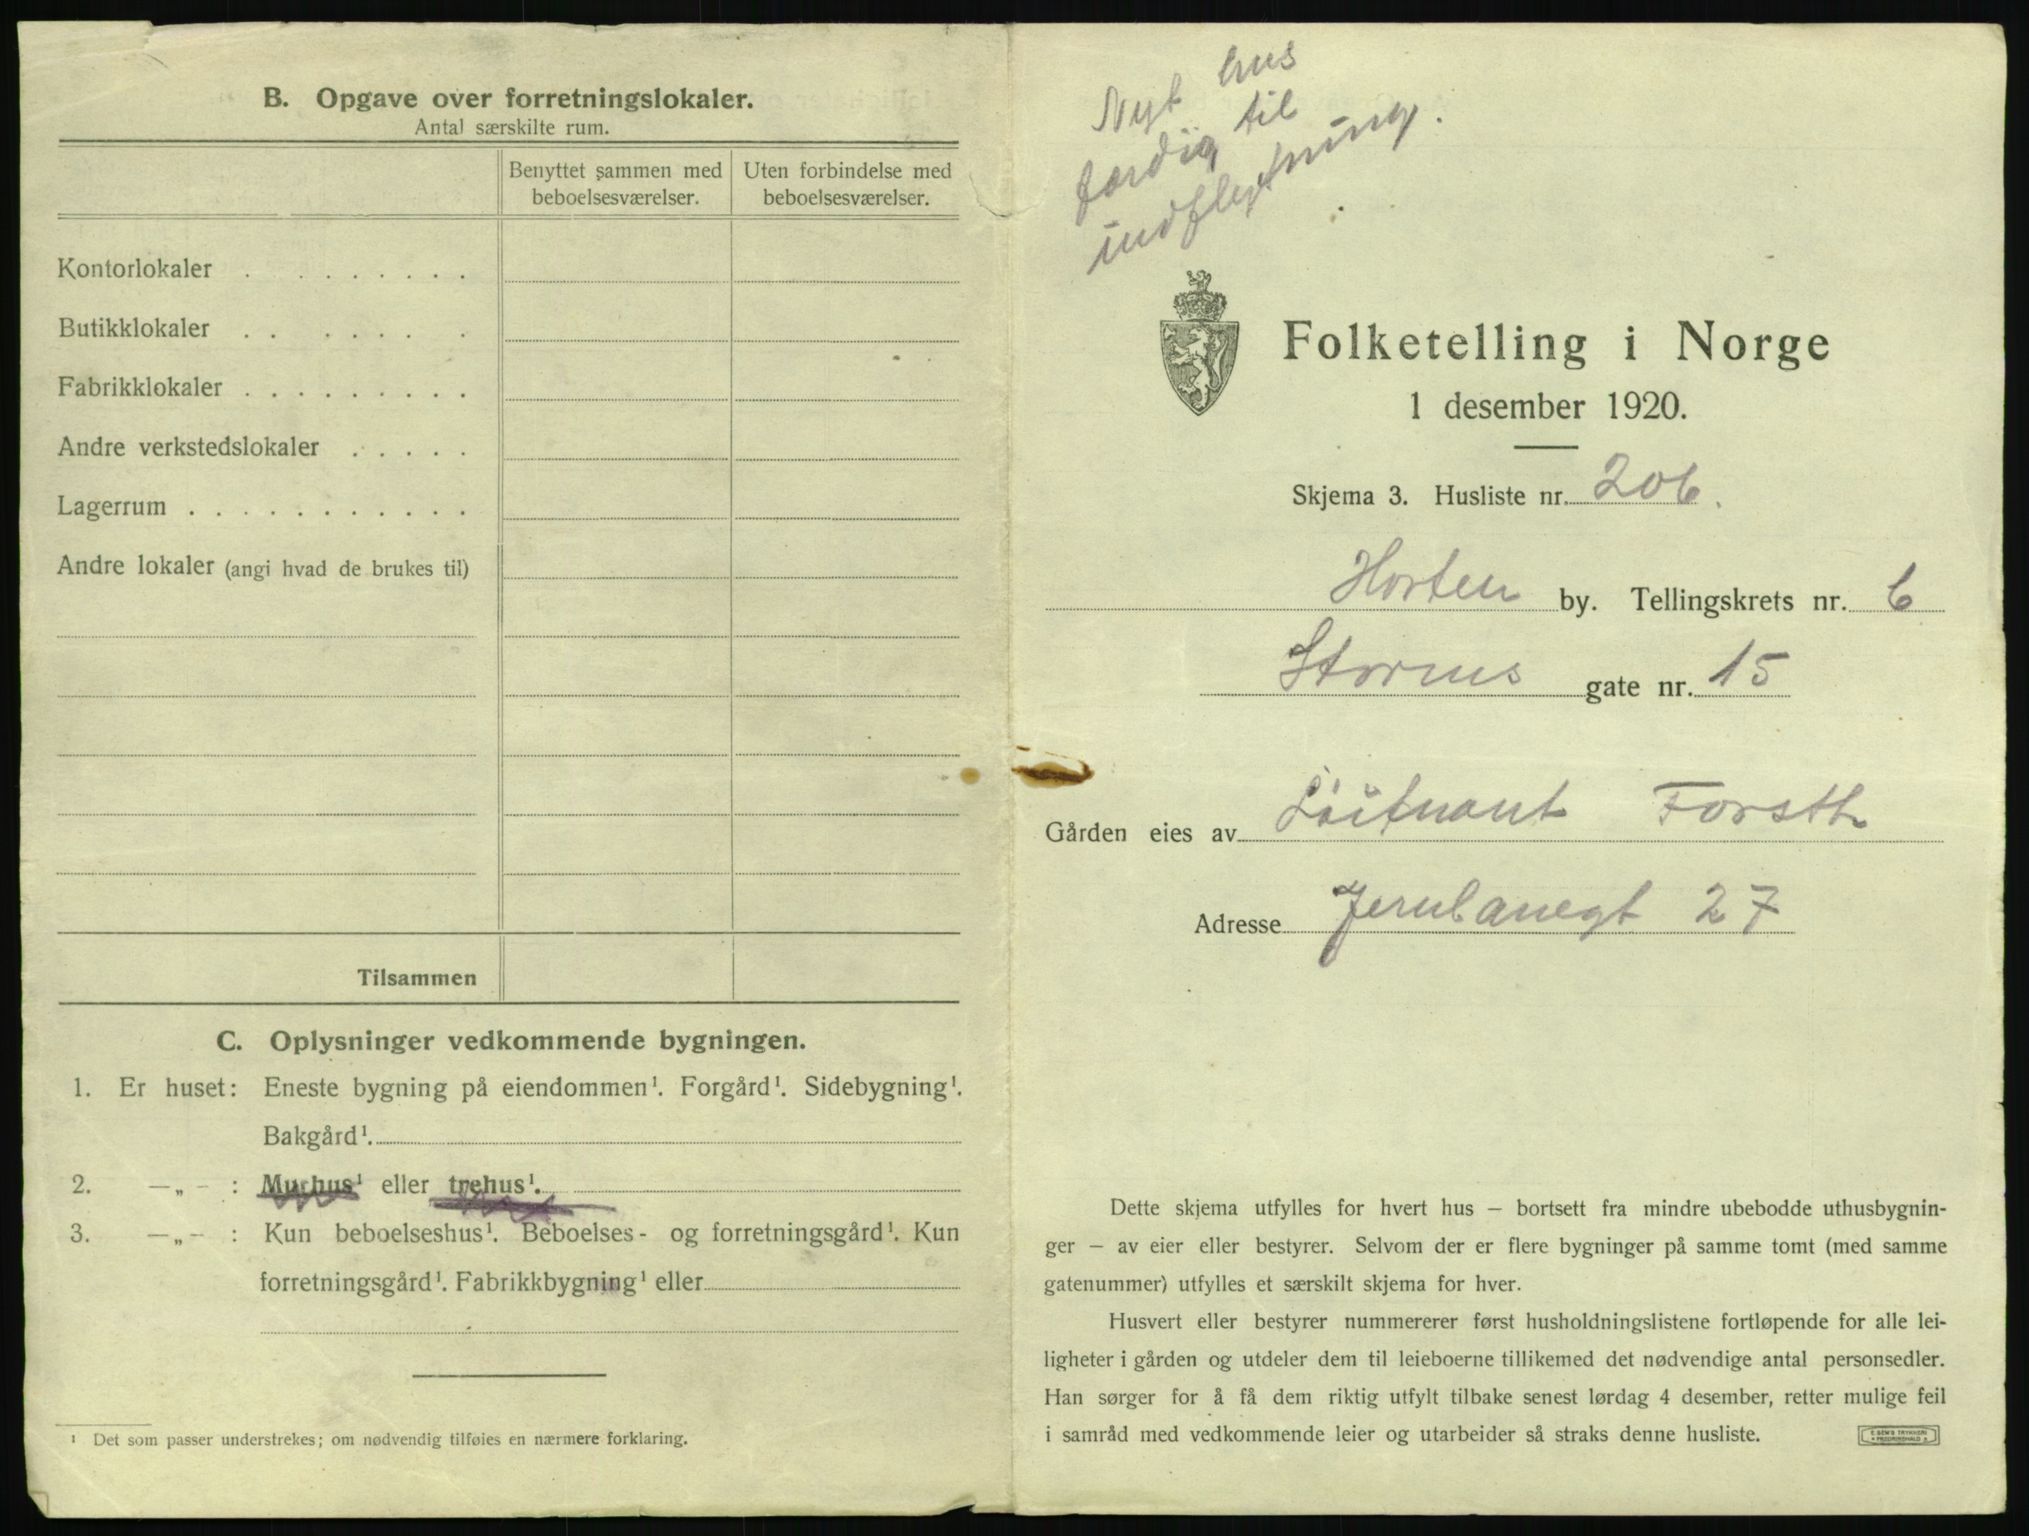 B. Opgave over forretningslokaler.
Antal særskilte rum.
Benyttet sammen med beboelsesværelser.
Uten forbindelse med beboelsesværelser.
Kontorlokaler
Butikklokaler
Fabrikklokaler
Andre verkstedslokaler
Lagerrum
Andre lokaler (angi hvad de brukes til)
Tilsammen
C. Oplysninger vedkommende bygningen.
1. Er huset: Eneste bygning på eiendommen¹. Forgård¹. Sidebygning¹.
Bakgård¹.
2. —„— : Murhus¹ eller trehus¹.
3. —„— : Kun beboelseshus¹. Beboelses- og forretningsgård¹. Kun
forretningsgård¹. Fabrikkbygning¹ eller
¹ Det som passer understrekes; om nødvendig tilføies en nærmere forklaring.
Nyt hus
færdig til
indflytning.
Folketelling i Norge
1 desember 1920.
Skjema 3. Husliste nr. 206.
Horten by. Tellingskrets nr. 6
Storms gate nr. 15
Gården eies av Løitnant Forsth
Adresse Jernbanegt 27
Dette skjema utfylles for hvert hus – bortsett fra mindre ubebodde uthusbygnin-
ger – av eier eller bestyrer. Selvom der er flere bygninger på samme tomt (med samme
gatenummer) utfylles et særskilt skjema for hver.
Husvert eller bestyrer nummererer først husholdningslistene fortløpende for alle lei-
ligheter i gården og utdeler dem til leieboerne tillikemed det nødvendige antal personsedler.
Han sørger for å få dem riktig utfylt tilbake senest lørdag 4 desember, retter mulige feil
i samråd med vedkommende leier og utarbeider så straks denne husliste.
E. SEM'S TRYKKERI
FREDRIKSHALD